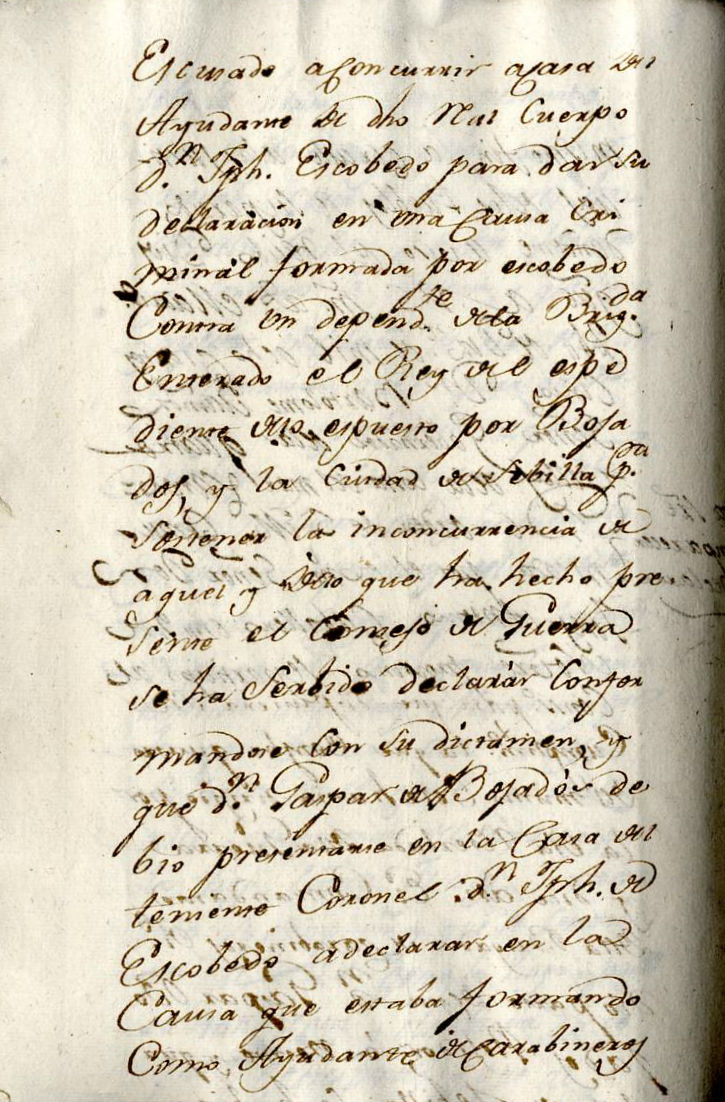 Escusado a Concurrir a Casa del
Ayudante de dho Rl Cuerpo
d.n Jph. Escobedo para dar su
declaracion en una Causa Cri
minal formada por escobedo
Contra un depend.te de la Brig.da
Enterado el Rey del espe
diente de lo espuesto por Boja
dos, y la Ciudad de Sebilla p.ra
sostener la inconcurrencia de
aquel y de lo que ha hecho pre
sente el Consejo de Guerra
se ha Serbido declarar Confor
mandose Con su dictamen, y
que d.n Gaspar de Bojadòs de
bio presentarse en la Casa del
teniente Coronel d.n Jph. de
Escobedo a declarar en la
Causa que estaba formando
Como Ayudante de Carabineros